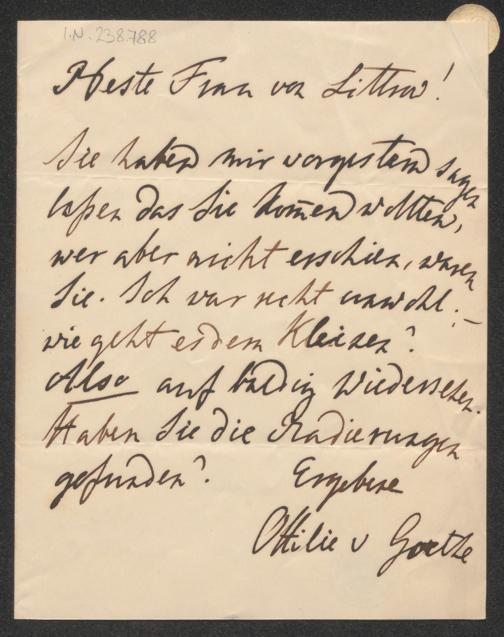 I.N. 238.788
Beste Frau von Littrow!
Sie haben mir vorgestern sagen
laßen das Sie kom̄en wollten,
wer aber nicht erschien, waren
Sie. Ich war recht unwohl. –
wie geht es dem Kleinen?
Also auf baldig Wiedersehen.
Haben Sie die Radierungen
gefunden? Ergebene
Ottilie v Goethe